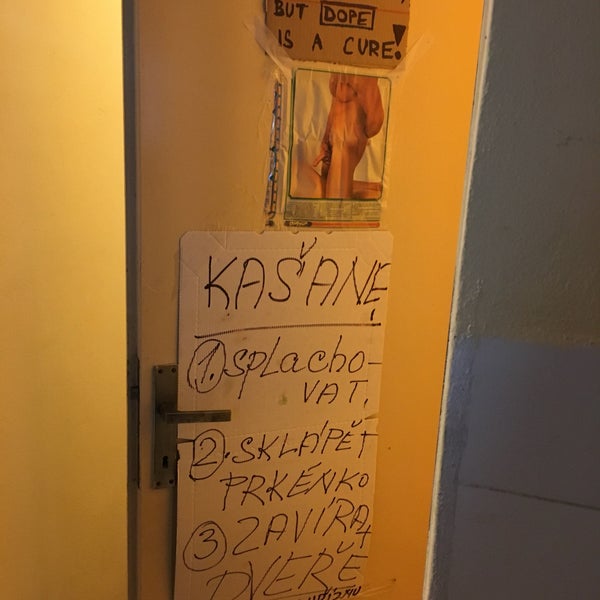 BUT DOPE
IS A CURE!
KAŠANĘ
1. SPLACHO-
VAT.
2. SKLÁPĚT
PRKÉNKO
3 ZAVÍRAT
DVEŘE